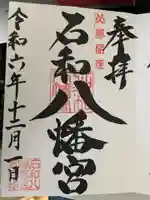 奉拝
石和八幡宮
令和六年十二月一日